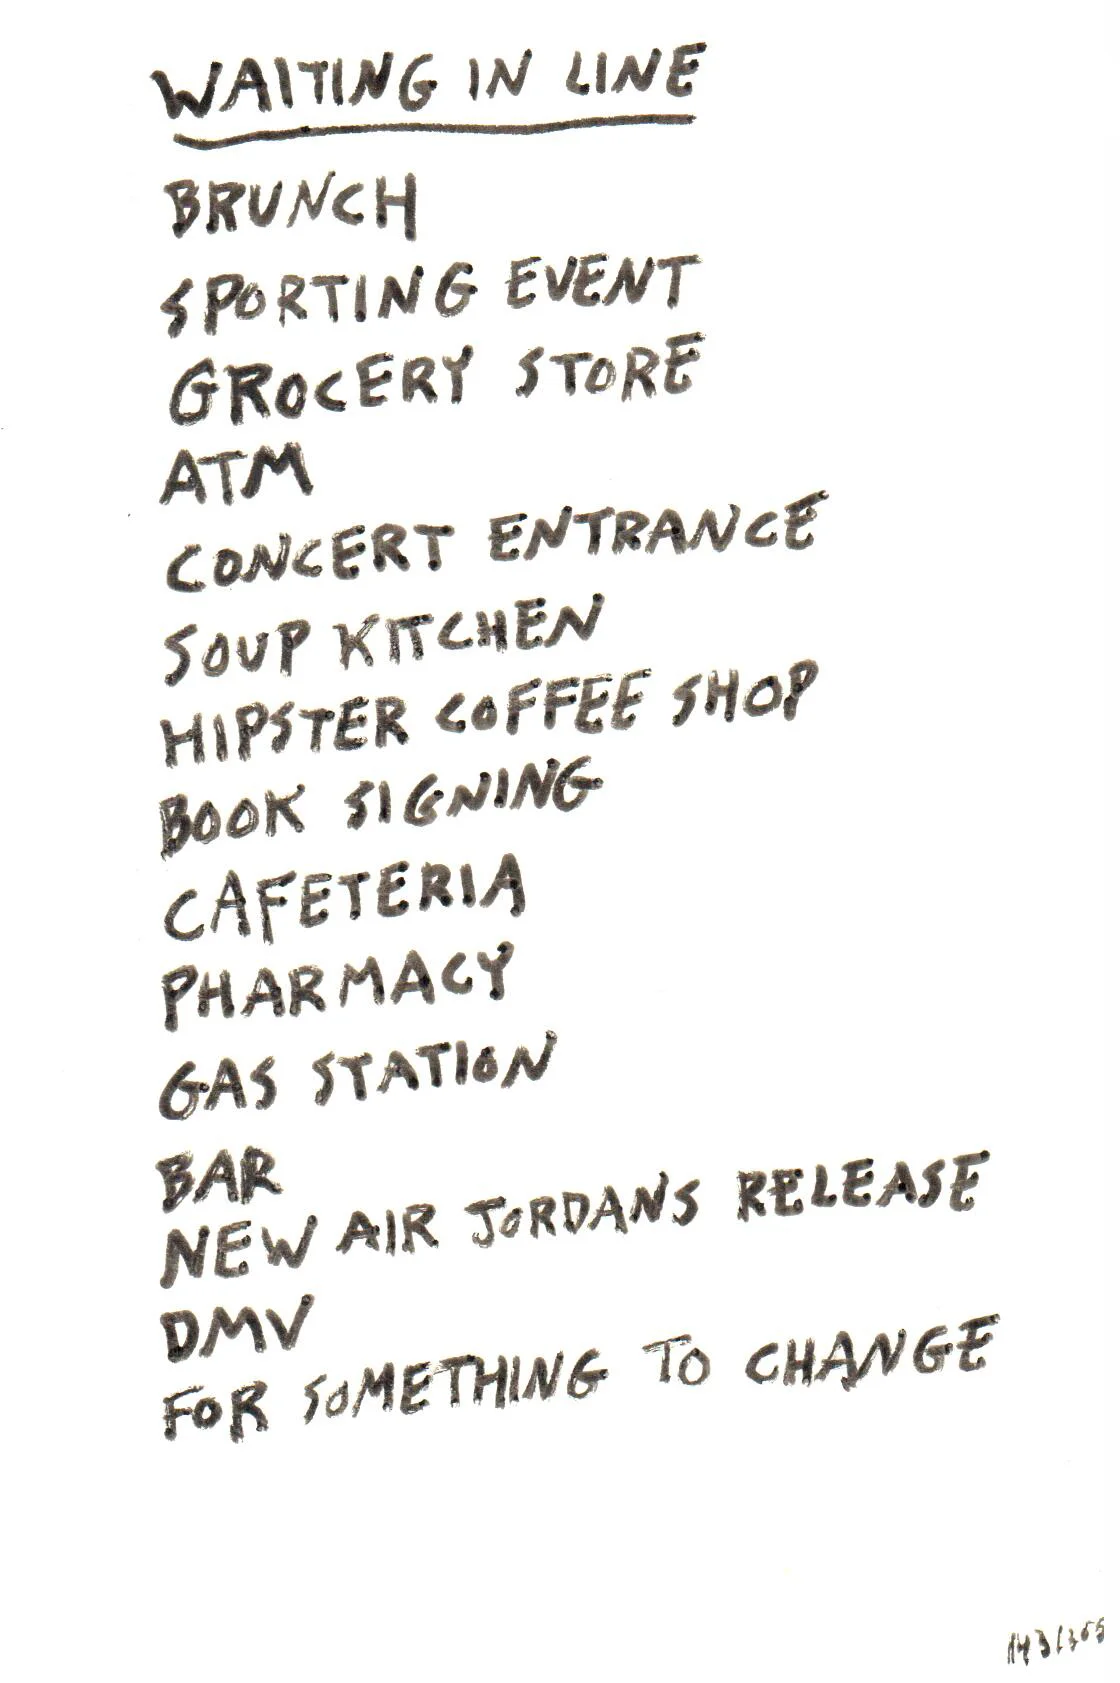 WAITING IN LINE
BRUNCH
SPORTING EVENT
GROCERY STORE
ATM
CONCERT ENTRANCE
SOUP KITCHEN
HIPSTER COFFEE SHOP
BOOK SIGNING
CAFETERIA
PHARMACY
GAS STATION
BAR
NEW AIR JORDANS RELEASE
DMV
FOR SOMETHING TO CHANGE
143/365